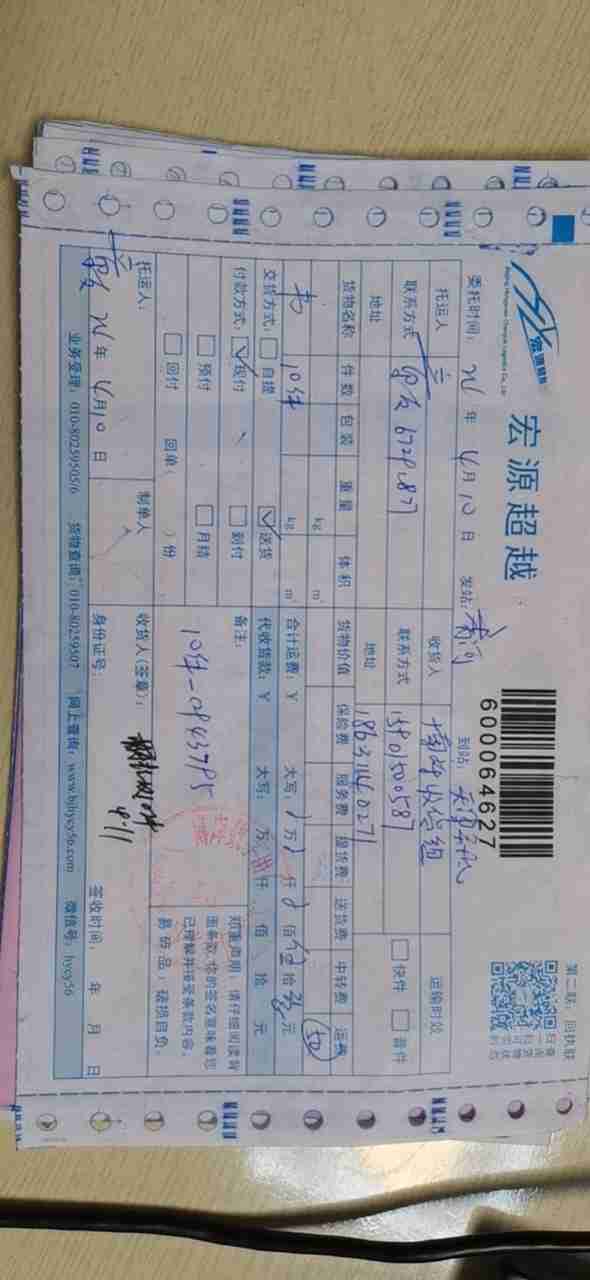 宏源超越
600064627
第二联：回执联
委托时间： 21 年 4 月 10 日 发站： 到站：
托运人 收货人 运输时效
联系方式 联系方式 15901500587 快件 普件
地址 地址 18631140271
货物名称 件数 包装 重量 体积 货物价值 保险费 服务费 提货费 送货费 中转费 运费
书 10件 kg m³ 50
kg m³ 合计运费：¥ 大写： 万 仟 佰 伍 拾 零 元
交货方式： 自提 送货 代收货款：¥ 大写： 万 仟 佰 拾 元
付款方式： 现付 到付 备注：
预付 月结 10件-0843795
回付 回单( )份
郑重声明：请仔细阅读背
面条款，你的签名意味着您
已理解并接受条款内容。
易碎品，破损自负。
托运人： 21 年 4 月 10 日 制单人 收货人(签章)： 4.11
身份证号： 签收时间： 年 月 日
业务受理：010-80259505/6 货物查询：010-80259507 网上查询：www.bjhycy56.com 微信号：hycy56